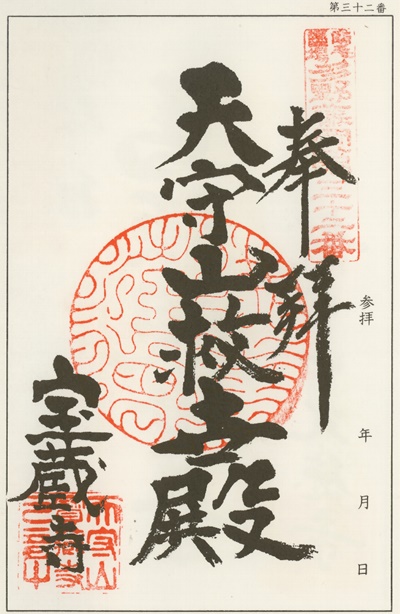 第三十二番
奉拝
参拝　年　月　日
天守山救世殿
宝蔵寺